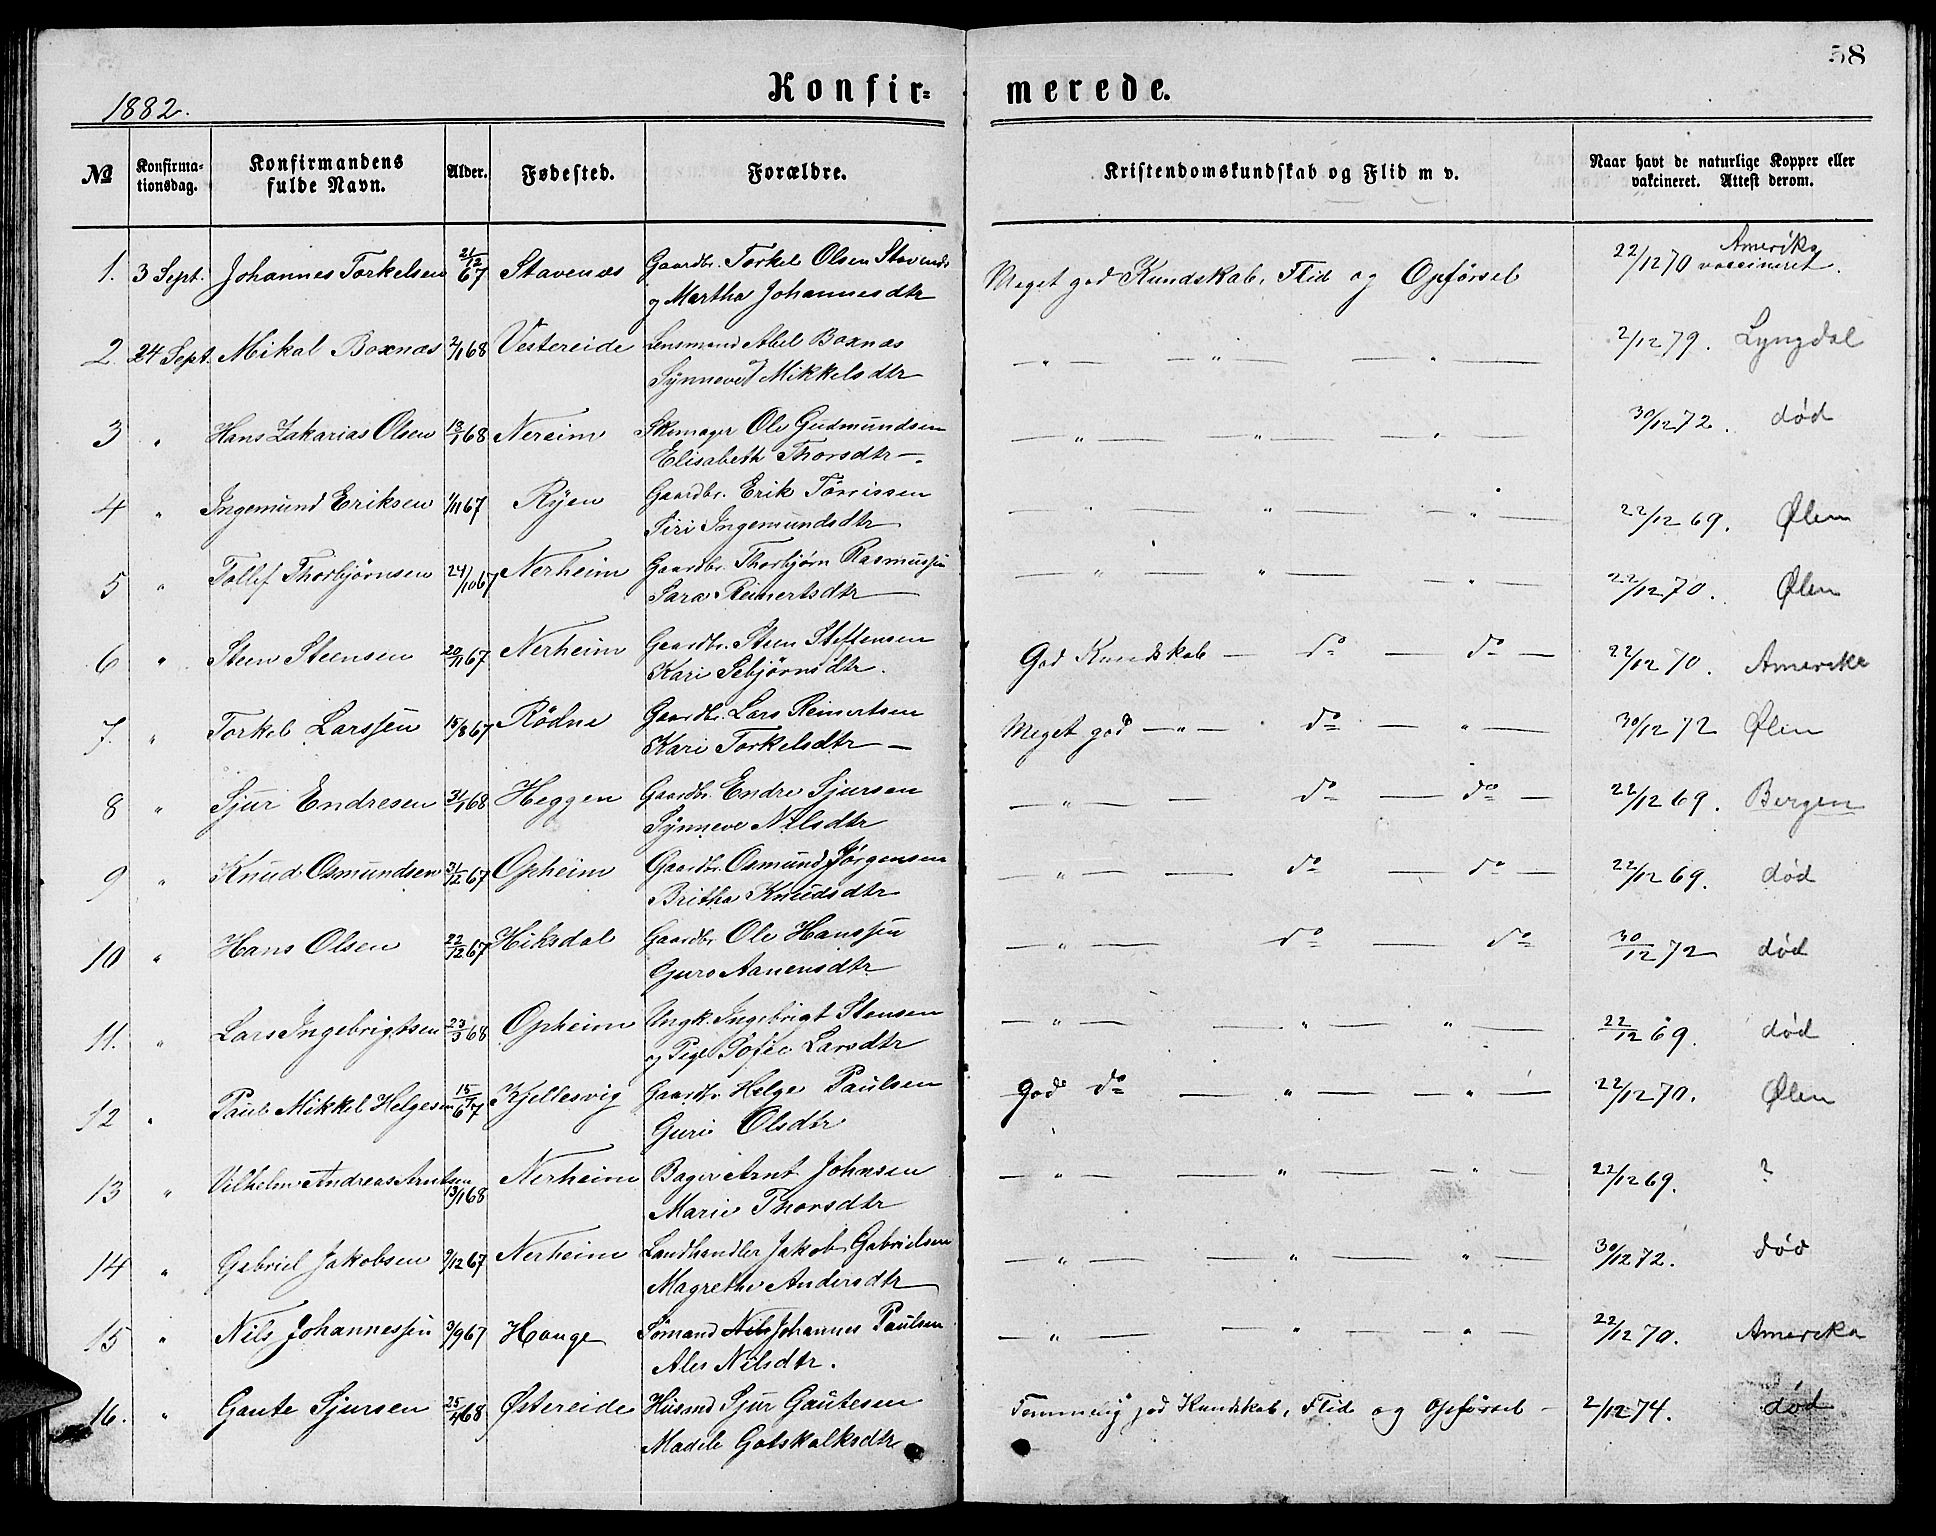 58
Konfir=merede.
1882.
№ Konfirmationsdag. Konfirmandens fulde Navn. Alder. Fødested. Forældre. Kristendomskundskab og Flid m v. Naar havt de naturlige Kopper eller vakcineret. Attest derom.
1. 3 Sept. Johannes Torkelsen 21/12 67 Stavenæs Gaardbr. Torkel Olsen Stavenæs Meget god Kundskab, Flid og Opførsel 22/12 70 vaccineret. Amerika
og Martha Johannesdtr
2. 24 Sept. Mikal Boxnæs 2/1 68 Vestereide Lensmand Abel Boxnæs — " — — " — — " — 2/12 79. Lyngdal
Synneva Mikkelsdtr
3 " Hans Zakarias Olsen 13/1 68 Nereim Skomager Ole Gudmundsen — " — — " — — " — 30/12 72. død
Elisabeth Thorsdtr —
4 " Ingemund Eriksen 1/11 67 Ryen Gaardbr. Erik Tørrissen — " — — " — — " — 22/12 69. Ølen
Siri Ingemundsdtr
5 " Tollef Thorbjørnsen 24/10 67 Nerheim Gaardbr. Thorbjørn Rasmussen — " — — " — — " — 22/12 70. Ølen
Sara Reinertsdtr
6 " Steen Steensen 20/11 67 Nerheim Gaardbr. Steen Steffensen God Kundskab — do — do — 22/12 70. Amerika
Kari Sebjørnsdtr.
7. " Torkel Larssen 15/8 67 Rødne Gaardbr. Lars Reinertsen Meget god — " — do — " — 30/12 72 Ølen
Kari Torkelsdtr —
8 " Sjur Endresen 31/1 68 Heggen Gaardbr. Endre Sjursen — " — — do — do — 22/12 69. Bergen
Synneve Nilsdtr
9 " Knud Osmundsen 31/12 67 Opheim Gaardbr. Osmund Jørgensen — " — — do — do — 22/12 69. død
Britha Knudsdtr
10 " Hans Olsen 22/12 67 Hiksdal Gaardbr Ole Hanssen — " — do — do 30/12 72 død
Guro Aanensdtr
11. " Lars Ingebrigtsen 23/3 68 Opheim Ungk. Ingebrigt Stensen — " — — " — " — 22/12 69. død
og Pige Sofie Larsdtr
12 " Paul Mikkel Helgesen 15/6 67 Kjellesvig Gaardbr. Helge Paulsen God do — " — — " — 22/12 70. Ølen
Guri Olsdtr
13 " Vilhelm Andreas Arntsen 13/1 68 Nerheim Bager Arnt Johnsen — " — — " — — " — 22/12 69. ?
Marie Thorsdtr
14 " Gabriel Jakobsen 9/12 67 Nerheim Landhandler Jakob Gabrielsen — " — — " — — " — 30/12 72. død
Magrethe Andersdtr
15 " Nils Johannessen 3/9 67 Hauge Sømand Nils Johannes Paulsen — " — — " — — " — 22/12 70. Amerika
Ales Nilsdtr.
16. " Gaute Sjursen 25/4 68 Østereide Husmd Sjur Gautesen Temmelig god Kundskab, Flid og Opførsel — 2/12 74. død
Madele Gotskalksdtr